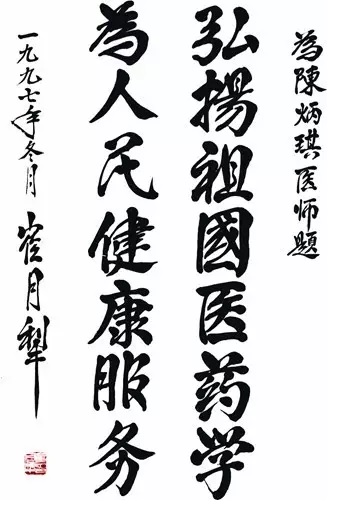 為陳炳琪医师題
弘揚祖國医药学
為人民健康服务
一九九七年冬月
崔月犁